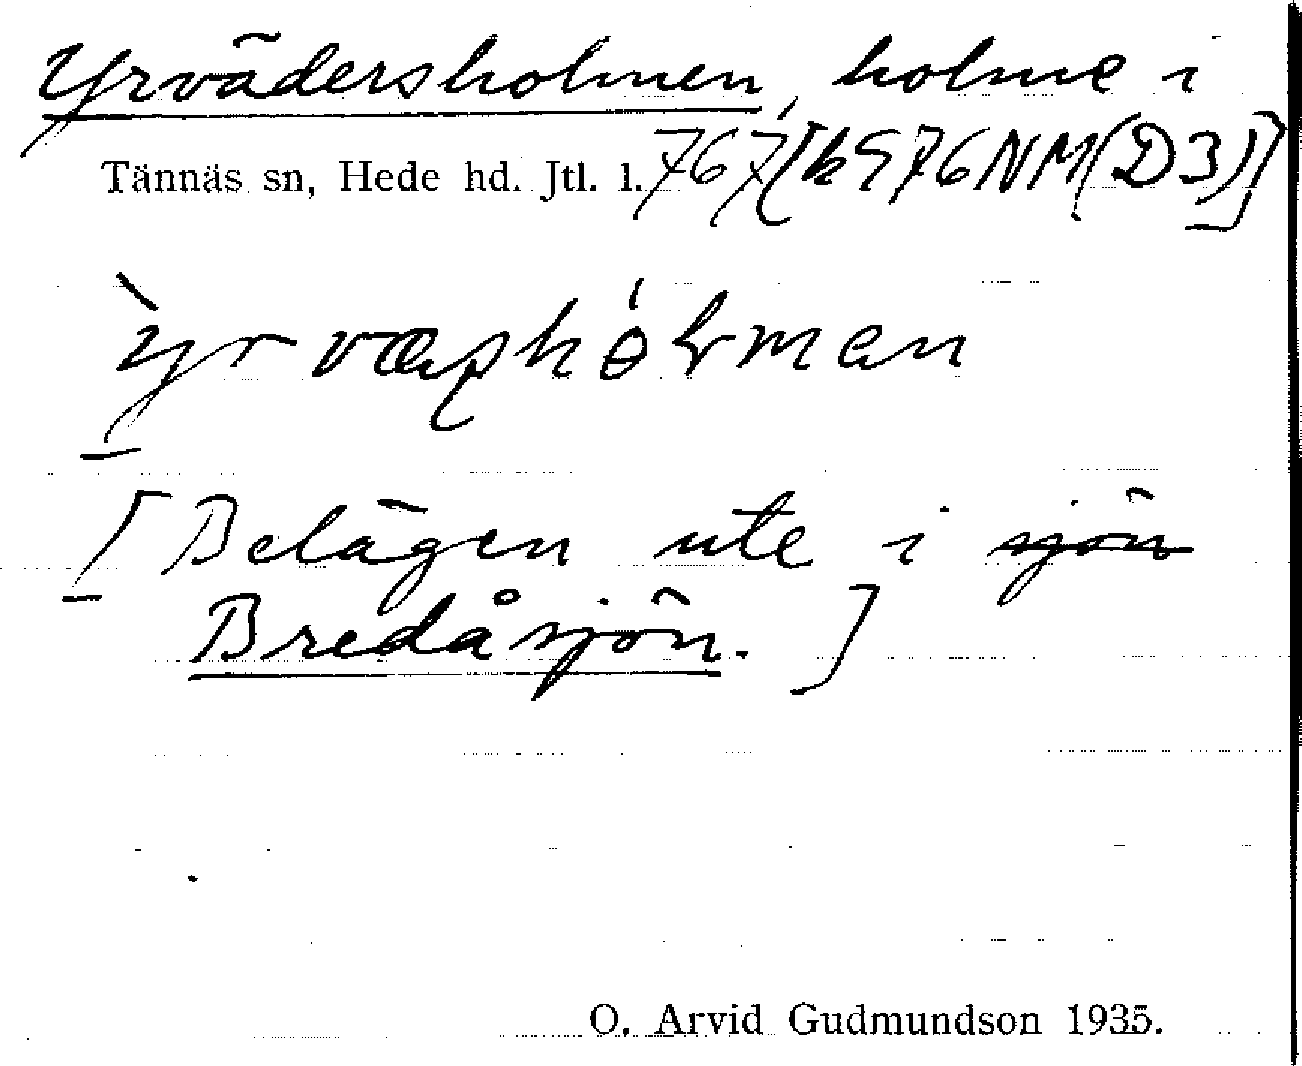 Yrvädersholmen, holme i
Tännäs sn, Hede hd. Jtl. l. 767 [k 976 NM (D3)]
[Belägen ute i sjön
Bredåsjön.]
O. Arvid Gudmundson 1935.